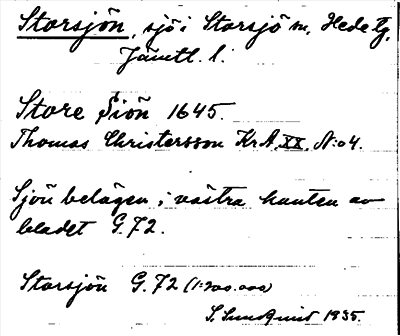 Storsjön, sjö i Storsjö sn, Hede tg,
Jämtl. l.
Store Siön 1645.
Thomas Christersson KrA, XX, N:o 4.
Sjön belägen i västra kanten av
bladet G.72.
Storsjön G.72 (1:200.000)
S. Sundquist 1935.